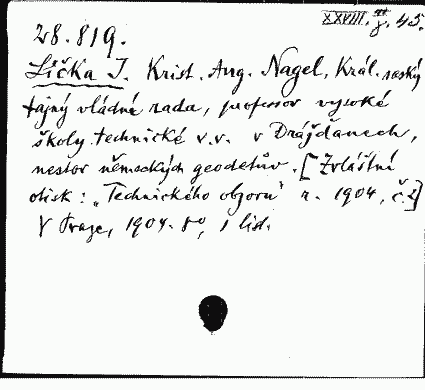 XXVIII. γ. 45.
28.819.
Líčka J. Krist. Aug. Nagel, Král. saský
tajný vládní rada, professor vysoké
školy technické v.v. v Drážďanech,
nestor německých geodetův. [Zvláštní
otisk: „Technického obzoru" r. 1904, č. 2]
V Praze, 1904. 8°, 1 list.